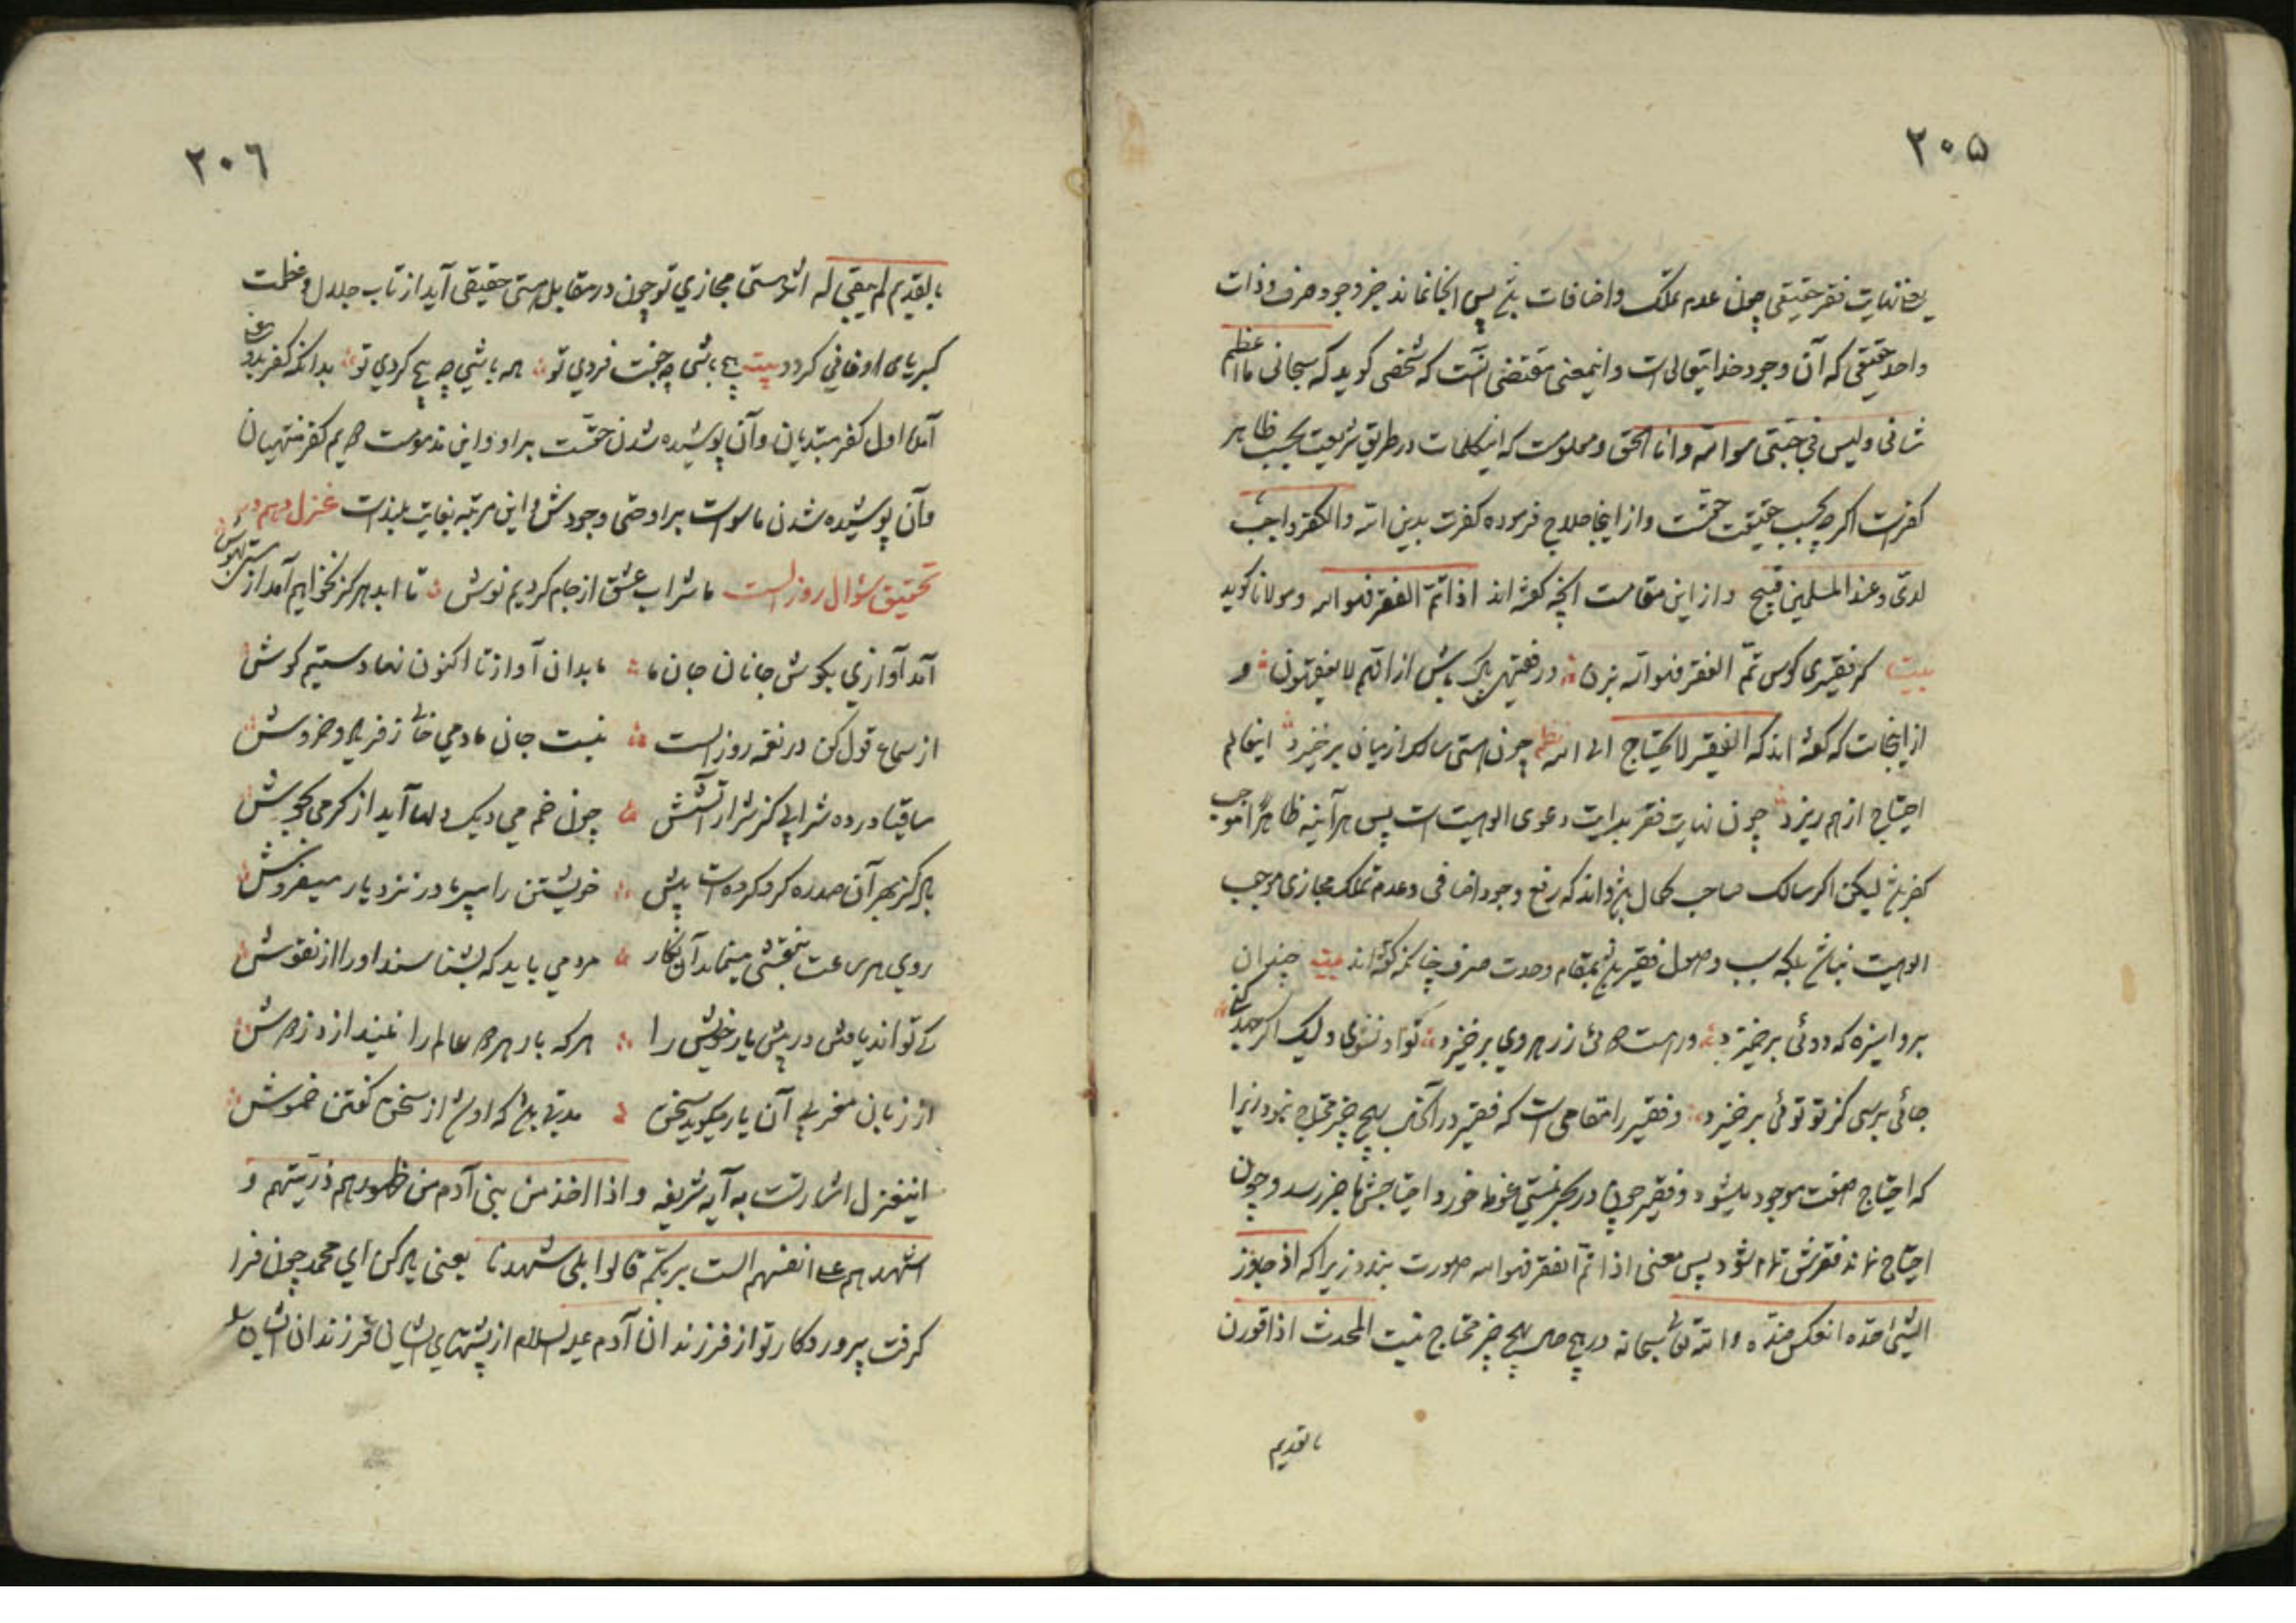 ۲۰۵
یعنی نهایت فقر حقیقی چون عدم تملک و اضافات باشد پس آنجا نماند جز وجود صرف و ذات
واحد حقیقی که آن وجود خدایتعالی است و اینمعنی مقتضی آنست که شخصی کوید که سبحانی ما اعظم
شانی و لیس فی جبتی سوا الله و انا الحق و معلومست که اینکلمات در طریق شریعت بحسب ظاهر
کفرست اکرچه بحسب حقیقت حقست و از اینجا حلاج فرموده کفرت بدین الله و الکفر واجب
لدی و عند المسلمین قبیح و از این مقامست آنچه کفته اند اذا تم الفقر فهو الله و مولانا کوید
بیت کر فقیری کوس تم الفقر فهو الله بزن در فقیه پاک باش از انهم لا یفقهون و
از اینجاست که کفته اند که الفقیر لا یحتاج الی الله نظم چون هستی سالک از میان برخیزد اینعالم
احتیاج از هم ریزد چون نهایت فقر بدایت دعوی الوهیت است پس هرآینه ظاهرا موجب
کفر باشد لیکن اکر سالک صاحب کمال باشد داند که رفع وجود اضافی و عدم تملک مجازی موجب
الوهیت نباشد بلکه سبب وصول فقیر باشد بمقام وحدت صرف چنانکه کفته اند بیت چندان
برو اینره که دوئی برخیزد ور هست دوئی ز رهروی برخیزد تو او نشوی ولیک اکر جهد کنی
جائی برسی کز تو توئی برخیزد و فقیر را مقامی است که فقیر در آنجا بهیچ چیز محتاج نبود زیرا
که احتیاج صفت موجود میشود و فقیر چون در بحر نیستی غوطه خورد احتیاجش نماند و چون
احتیاج نماند فقرش تمام شود پس معنی اذا تم الفقر فهو الله صورت بندد زیرا که اذا جاوز
الشیئ حده انعکس ضده و الله تعالی سبحانه در هیچ حال بهیچ چیز محتاج نیست المحدث اذا قورن
بالقدیم
۲۰۶
بالقدیم لم یبقی له اثر هستی مجازی تو چون در مقابل هستی حقیقی آید از تاب جلال و عظمت
کبریای او فانی کردد بیت هیچ باشی چو جفت فردی تو همه باشی چو هیچ کردی تو بدانکه کفر بدو معنی
آمده اول کفر مبتدیان و آن پوشیده شدن حقست بر او و این مذمومست دویم کفر منتهیان
و آن پوشیده شدن ماسواست بر او حتی وجودش و این مرتبه بغایت بلندست غزل دهم در
تحقیق سؤال روز الست ما شراب عشق از جام کردیم نوش تا ابد هرکز نخواهیم آمد از مستی بهوش
آمد آوازی بکوش جانان جان ما ما بدان آواز تا اکنون نهادستیم کوش
از سماع قول کن در نغمه روز الست نیست جان ما دمی خالی ز فریاد و خروش
ساقیا در ده شرابی کز شرار آتشش چون خم می دیک دلها آید از کرمی بجوش
یار کز بهر آن صد ره کرو کردست پیش خویشتن را سپر ما در نزد یار میفروش
روی هر ساعت بنقشی مینماید آن نکار مردمی باید که بشناسند او را از نقوش
کی تواند یافتن در پیش یار خویش را هر که بار هر دو عالم را نیندازد ز دوش
از زبان مغربی آن یار میکوید سخن مدتی باشد که او شد از سخن کفتن خموش
اینغزل اشارتست به آیه شریفه و اذ اخذ من بنی آدم من ظهورهم ذریتهم و
اشهدهم علی انفسهم الست بربکم قالوا بلی شهدنا یعنی یاد کن ای محمد چون فرا
کرفت پروردکار تو از فرزندان آدم علیه السلام از پشتهای ایشان فرزندان ایشان